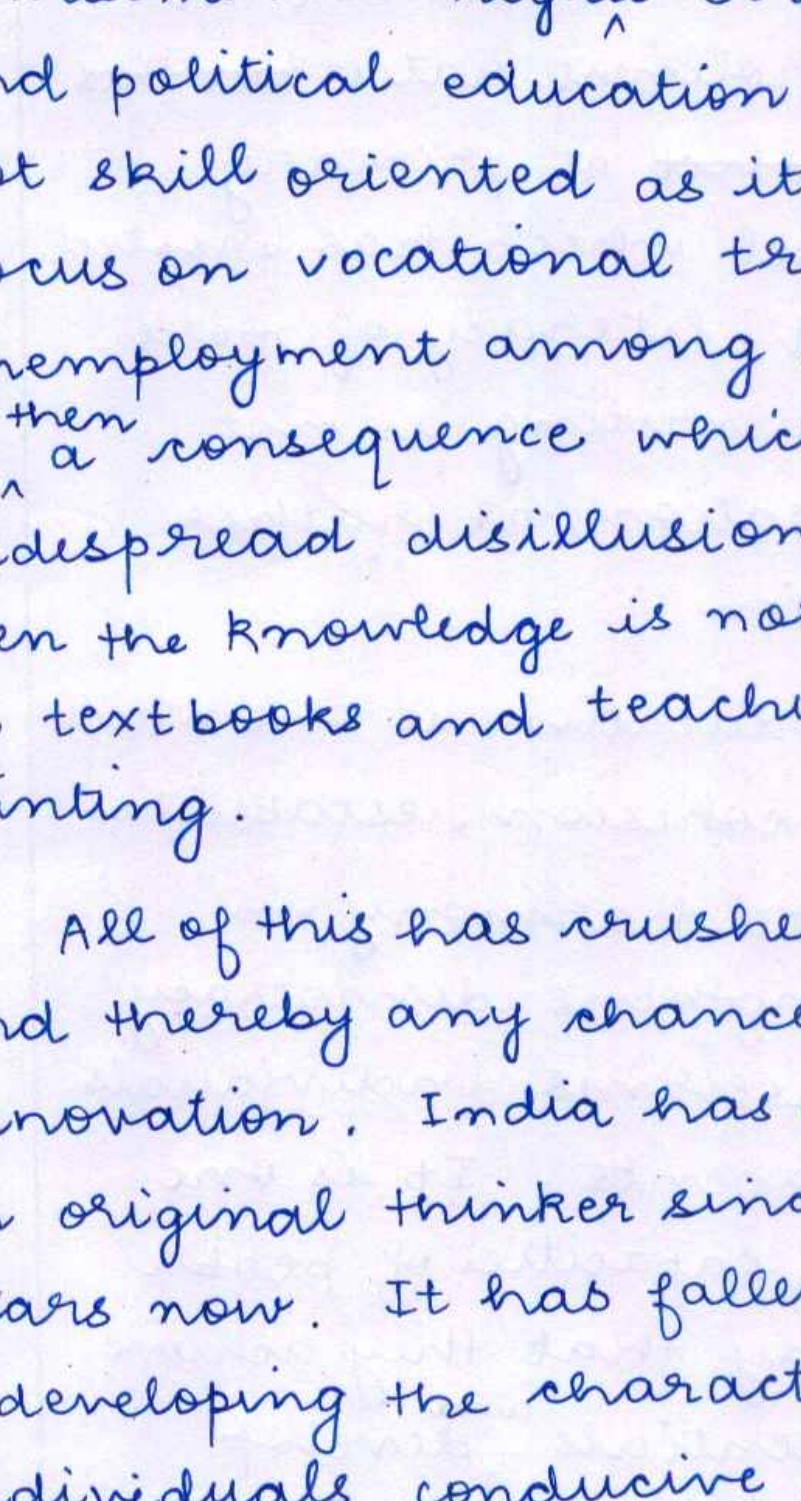 nd political education
ot skill oriented as it
ocus on vocational tr
nemployment among
then
a consequence whic
idespread disillusion
en the knowledge is no
textbooks and teachi
inting.
All of this has crushe
nd thereby any chance
nnovation. India has
original thinker sinc
ars now. It has falle
developing the charact
dividuals conducive